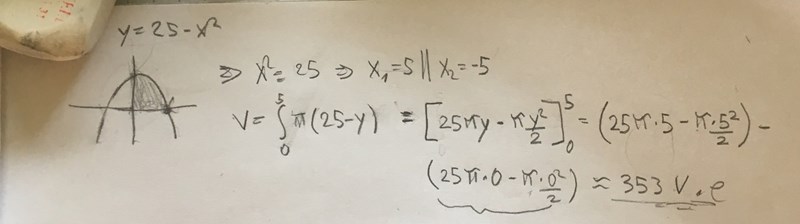 y = 25 - x²
⇒ x² = 25 ⇒ x₁ = 5 || x₂ = -5
V = ∫₀⁵ π(25-y) = [25πy - πy²/2]₀⁵ = (25π·5 - π·5²/2) -
(25π·0 - π·0²/2) ≈ 353 V.e